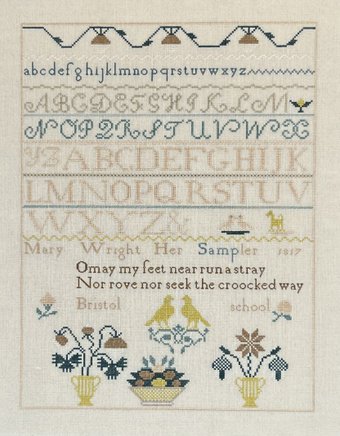 abcdefghijklmnopqrstuvwxyz
ABCDEFGHIKLM
NOPQRSTUVWX
YZABCDEFGHIJK
LMNOPQRSTUV
WXYZ&
Mary Wright Her Sampler 1817
O may my feet near run a stray
Nor rove nor seek the croocked way
Bristol school